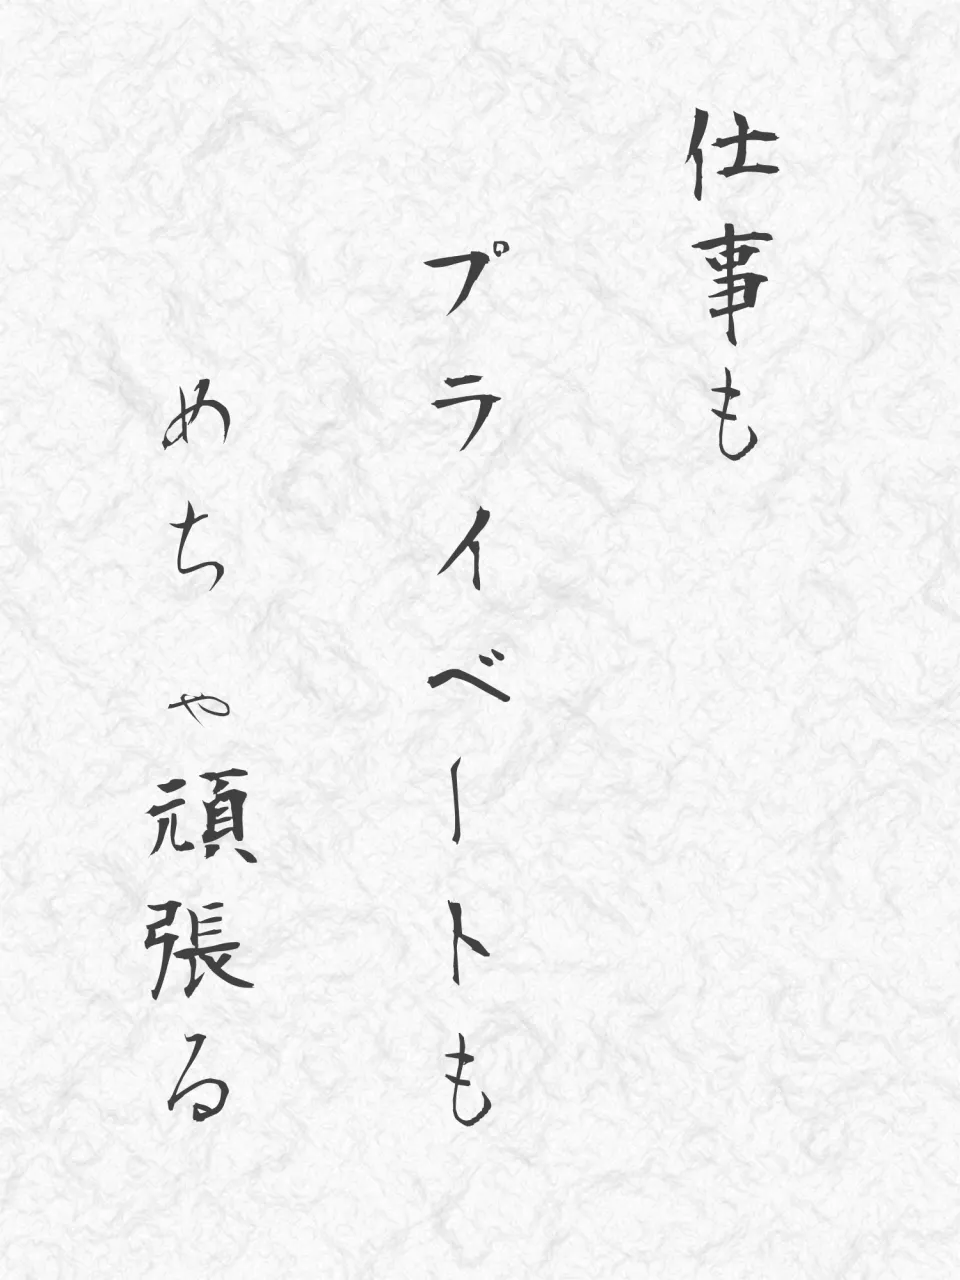 仕事も
プライベートも
めちゃ頑張る